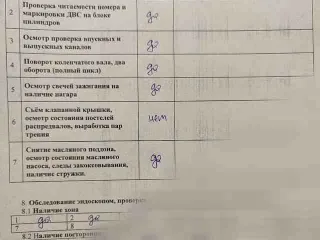 Проверка читаемости номера и
2 маркировки ДВС на блоке да
цилиндров
3 Осмотр проверка впускных и да
выпускных каналов
4 Поворот коленчатого вала, два да
оборота (полный цикл)
5 Осмотр свечей зажигания на да
наличие нагара
Съём клапанной крышки,
6 осмотр состояния постелей нет
распредвалов, выработка пар
трения
Снятие масляного поддона,
7 осмотр состояния масляного да
насоса, следы закоксовывания,
наличие стружки.
8. Обследование эндоскопом, провер
8.1 Наличие хона
1 да 2 да
7 8
8.2 Наличие посторонн